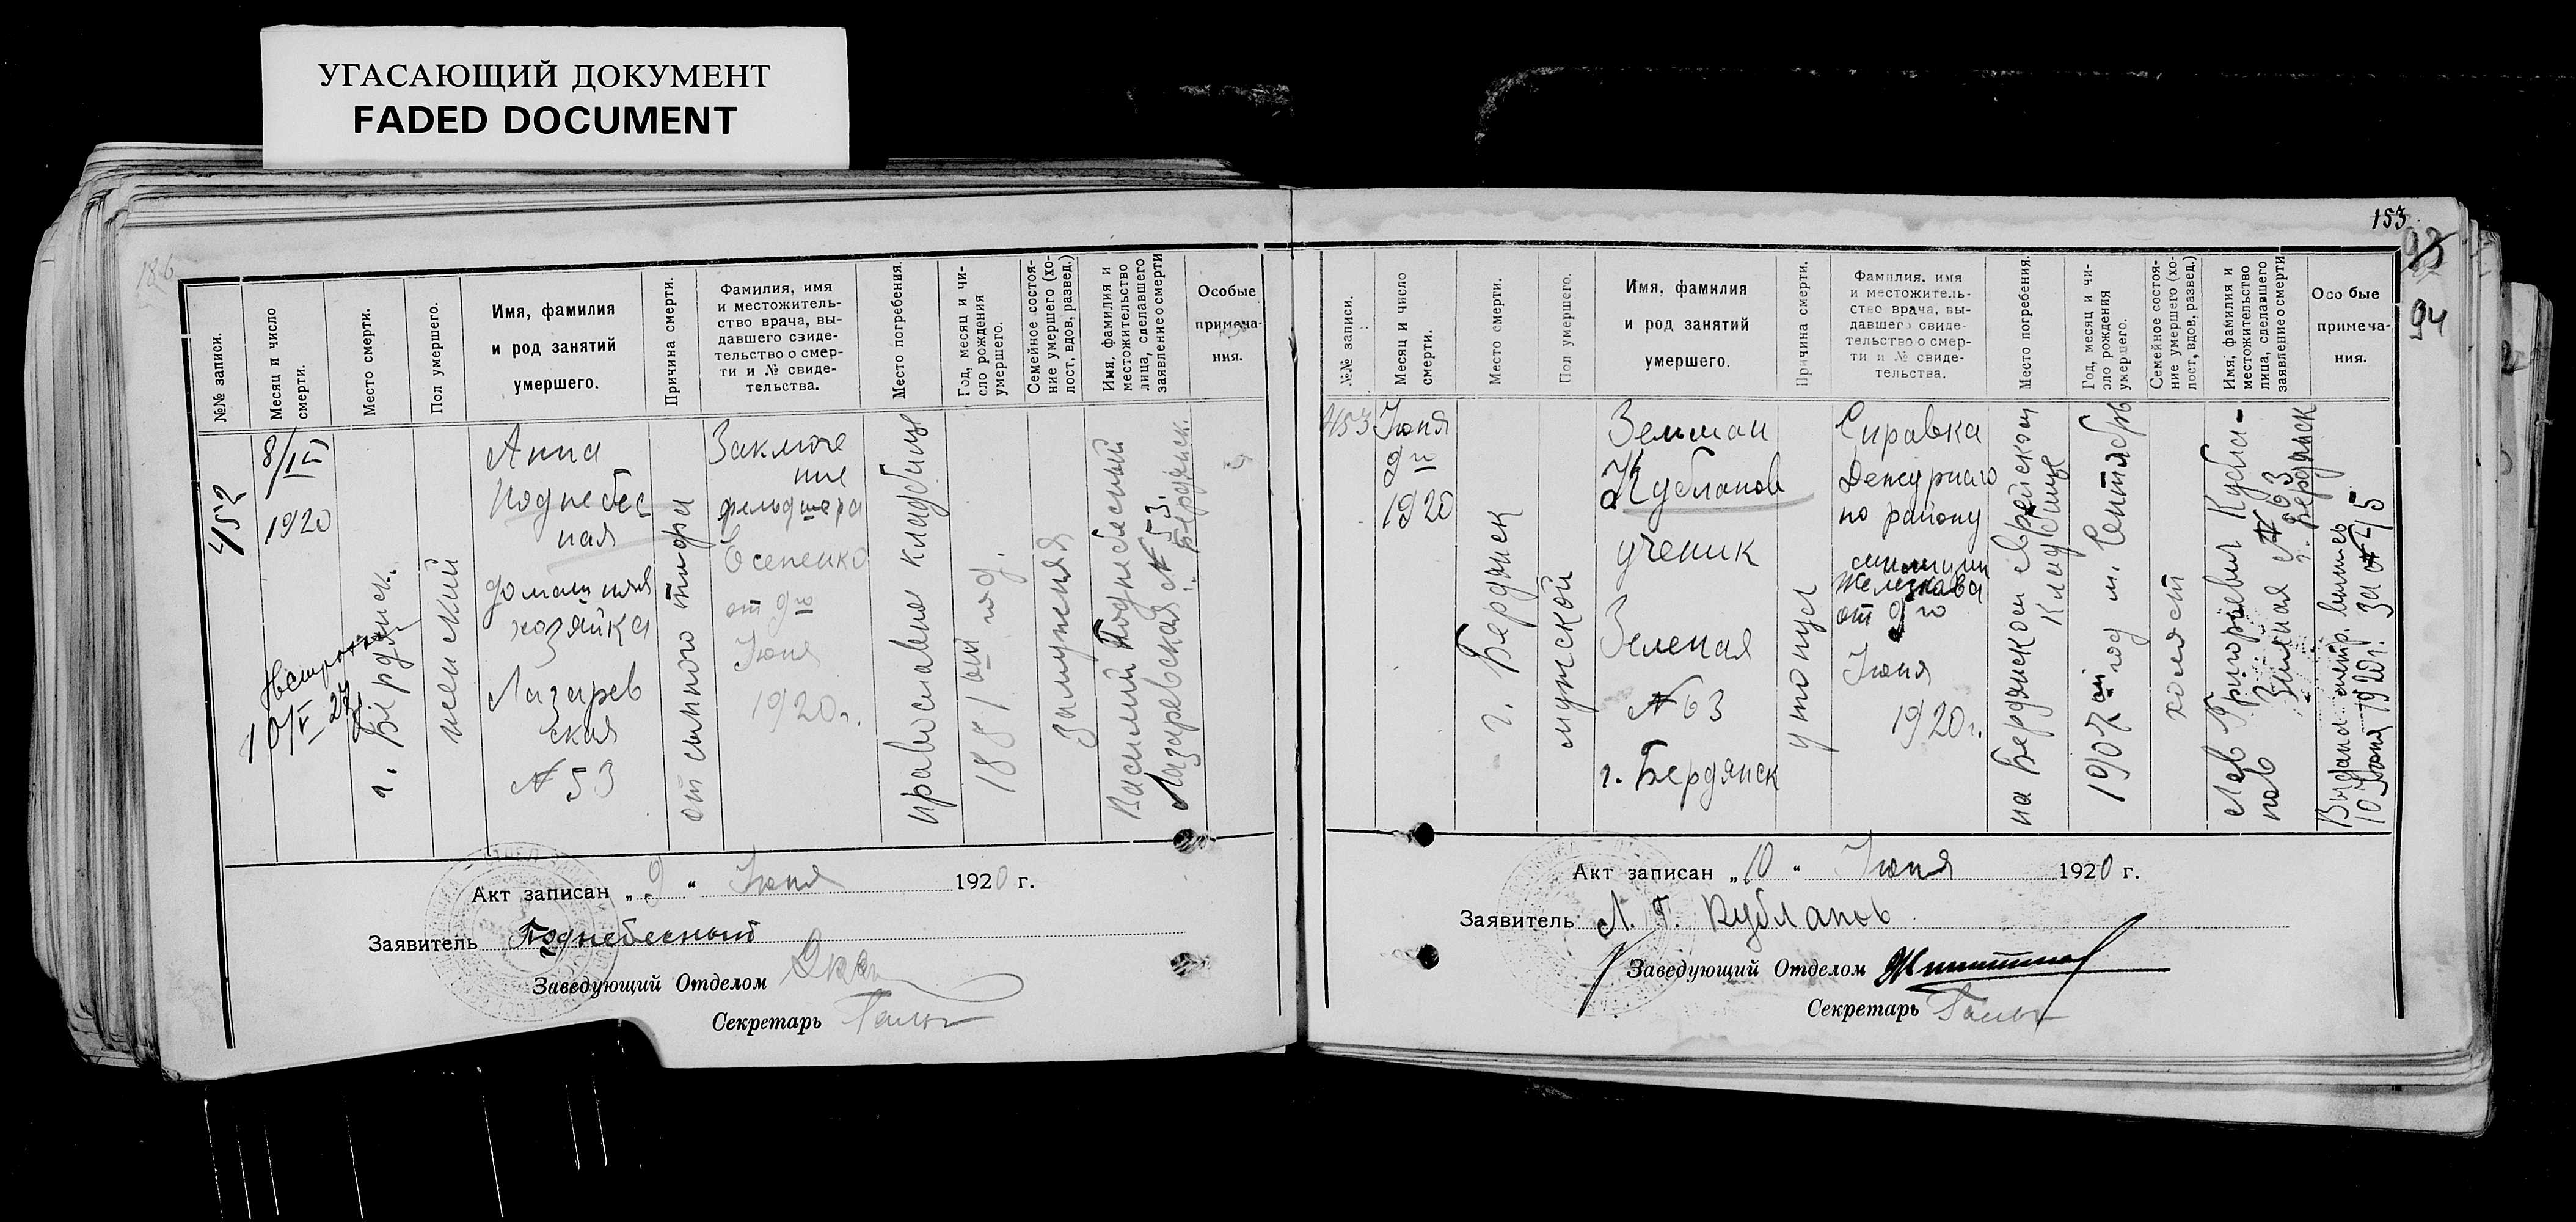 УГАСАЮЩИЙ ДОКУМЕНТ
FADED DOCUMENT
186
№№ записи.
Месяц и число
смерти.
Место смерти.
Пол умершего.
Имя, фамилия
и род занятий
умершего.
Причина смерти.
Фамилия, имя
и местожитель-
ство врача, вы-
давшего свиде-
тельство о смер-
ти и № свиде-
тельства.
Место погребения.
Год, месяц и чи-
сло рождения
умершего.
Семейное состоя-
ние умершего (хо-
лост, вдов, развед.)
Имя, фамилия и
местожительство
лица, сделавшего
заявление о смерти
Особые
примеча-
ния.
452
8/IV
1920
г. Бердянск.
10/V 27
женский
Анна
Поднебес
ная
домашняя
хозяйка
Лазарев
ская
№ 53
от сыпного тифа
Заключе
ние
фельдшера
Осепенко
от 9го
Июня
1920 г.
православне кладбище
1881 ый год.
Замужняя
Василий Поднебесный
Лазаревская № 53.
г. Бердянск.
Акт записан „ 9 “ Июня 1920 г.
Заявитель Поднебесный
Заведующий Отделом
Секретарь
153
93
94
№№ записи.
Месяц и число
смерти.
Место смерти.
Пол умершего.
Имя, фамилия
и род занятий
умершего.
Причина смерти.
Фамилия, имя
и местожитель-
ство врача, вы-
давшего свиде-
тельство о смер-
ти и № свиде-
тельства.
Место погребения.
Год, месяц и чи-
сло рождения
умершего.
Семейное состоя-
ние умершего (хо-
лост, вдов, развед.)
Имя, фамилия и
местожительство
лица, сделавшего
заявление о смерти.
Особые
примеча-
ния.
453
Июня
9го
1920
г. Бердянск
мужской
Зельман
Кубланов
ученик
Зеленая
№ 63
г. Бердянск
утонул
Справка
Дежурнаго
по району
милиции
Железкова
от 9го
Июня
1920 г.
на Бердянском Еврейском
Кладбище
1907 ой год м. Сентябрь
холяст
Лев Григорьевич Кубла-
нов Зеленая № 63
г. Бердянск
Выдана метр. выпись
10 Июня 1920 г. за № 415
Акт записан „ 10 “ Июня 1920 г.
Заявитель Л. Г. Кубланов
Заведующий Отделом
Секретарь